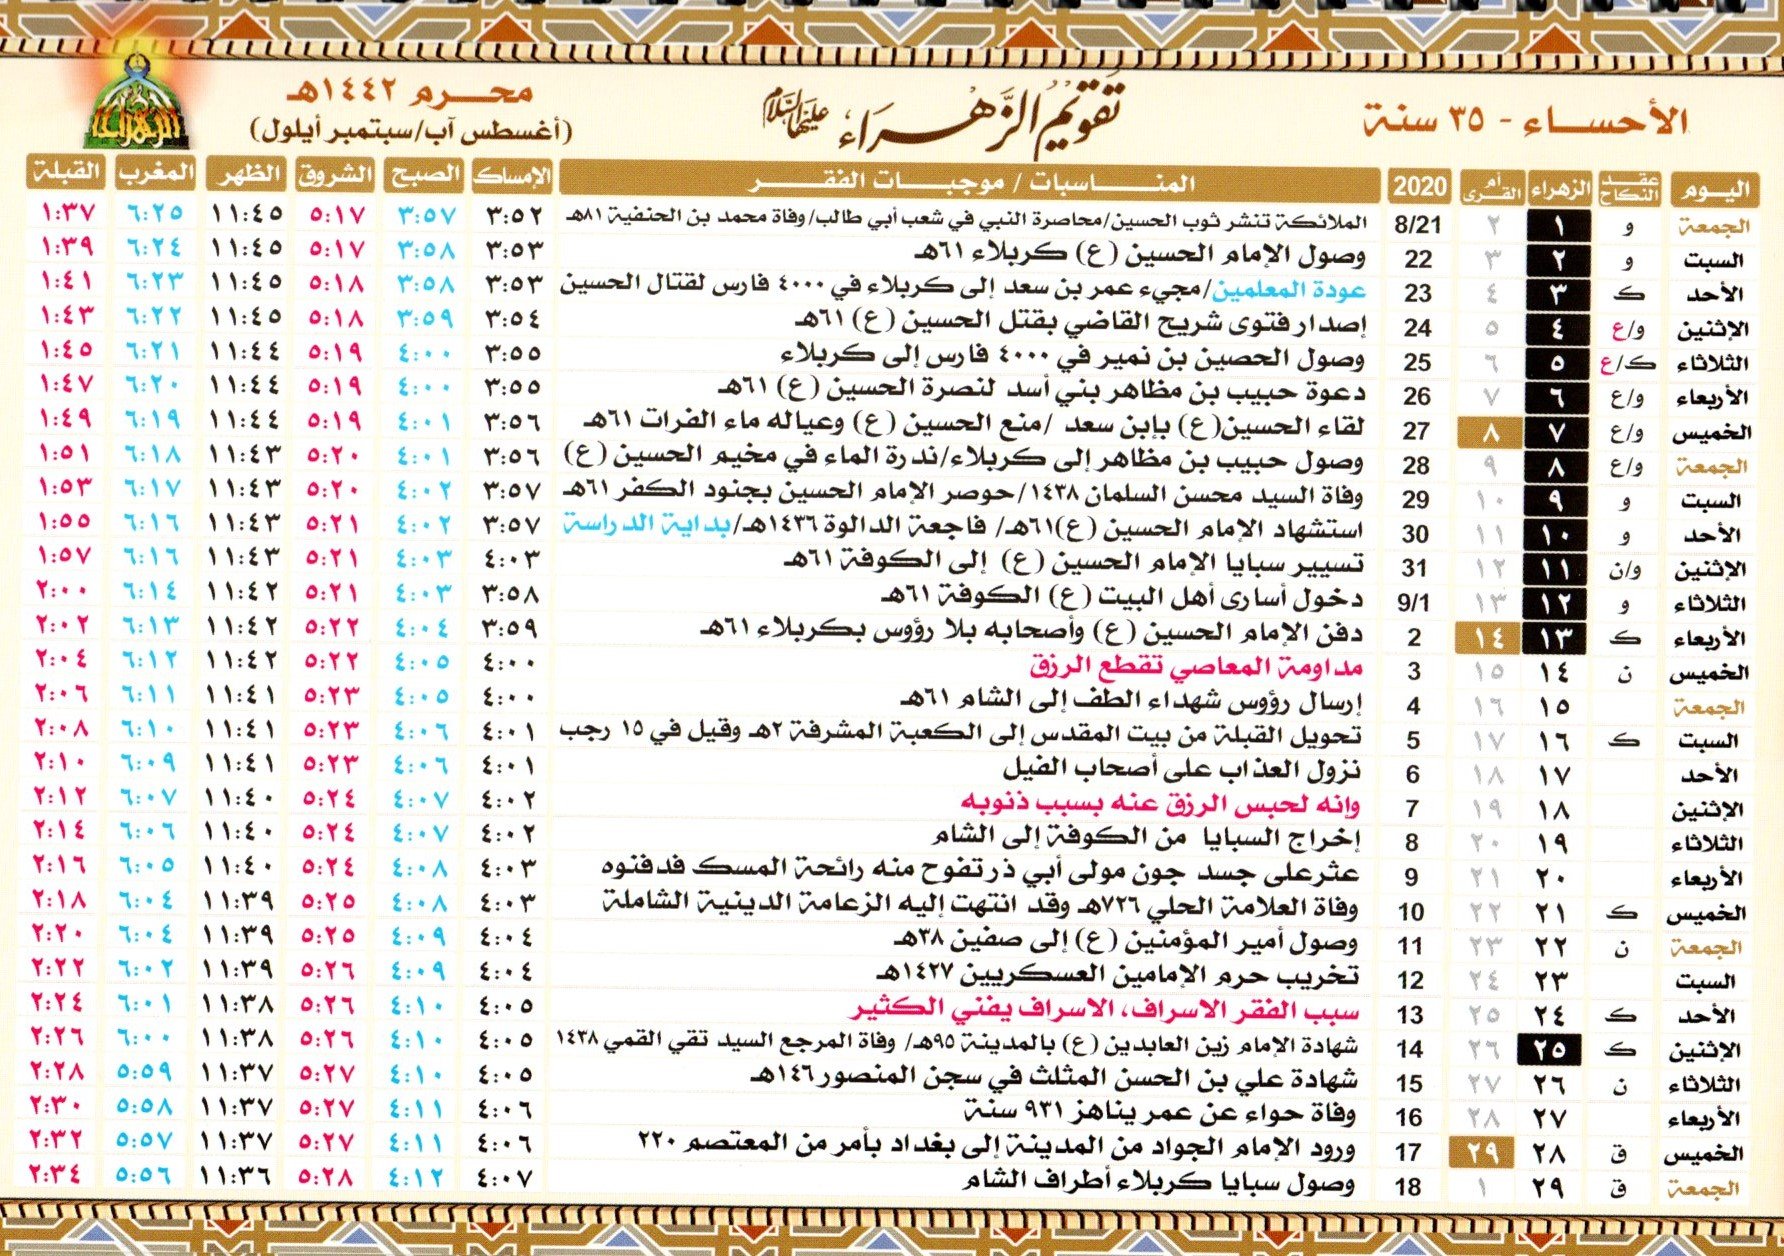 الأحساء - ٣٥ سنة
تقويم الزهراء عليها السلام
محرم ١٤٤٢هـ
(أغسطس آب/سبتمبر أيلول)
اليوم عقد النكاح الزهراء أم القرى 2020 المناسبات / موجبات الفقر الإمساك الصبح الشروق الظهر المغرب القبلة
الجمعة و ١ ٢ 8/21 الملائكة تنشر ثوب الحسين/محاصرة النبي في شعب أبي طالب/وفاة محمد بن الحنفية ٨١هـ ٣:٥٢ ٣:٥٧ ٥:١٧ ١١:٤٥ ٦:٢٥ ١:٣٧
السبت و ٢ ٣ 22 وصول الإمام الحسين (ع) كربلاء ٦١هـ ٣:٥٣ ٣:٥٨ ٥:١٧ ١١:٤٥ ٦:٢٤ ١:٣٩
الأحد ك ٣ ٤ 23 عودة المعلمين/مجيء عمر بن سعد إلى كربلاء في ٤٠٠٠ فارس لقتال الحسين ٣:٥٣ ٣:٥٨ ٥:١٨ ١١:٤٥ ٦:٢٣ ١:٤١
الإثنين و/ع ٤ ٥ 24 إصدار فتوى شريح القاضي بقتل الحسين (ع) ٦١هـ ٣:٥٤ ٣:٥٩ ٥:١٨ ١١:٤٥ ٦:٢٢ ١:٤٣
الثلاثاء ك/ع ٥ ٦ 25 وصول الحصين بن نمير في ٤٠٠٠ فارس إلى كربلاء ٣:٥٥ ٤:٠٠ ٥:١٩ ١١:٤٤ ٦:٢١ ١:٤٥
الأربعاء و/ع ٦ ٧ 26 دعوة حبيب بن مظاهر بني أسد لنصرة الحسين (ع) ٦١هـ ٣:٥٥ ٤:٠٠ ٥:١٩ ١١:٤٤ ٦:٢٠ ١:٤٧
الخميس و/ع ٧ ٨ 27 لقاء الحسين(ع) بإبن سعد /منع الحسين (ع) وعياله ماء الفرات ٦١هـ ٣:٥٦ ٤:٠١ ٥:١٩ ١١:٤٤ ٦:١٩ ١:٤٩
الجمعة و/ع ٨ ٩ 28 وصول حبيب بن مظاهر إلى كربلاء/ندرة الماء في مخيم الحسين (ع) ٣:٥٦ ٤:٠١ ٥:٢٠ ١١:٤٣ ٦:١٨ ١:٥١
السبت و ٩ ١٠ 29 وفاة السيد محسن السلمان ١٤٣٨/حوصر الإمام الحسين بجنود الكفر ٦١هـ ٣:٥٧ ٤:٠٢ ٥:٢٠ ١١:٤٣ ٦:١٧ ١:٥٣
الأحد و ١٠ ١١ 30 استشهاد الإمام الحسين (ع)٦١هـ/ فاجعة الدالوة ١٤٣٦هـ/بداية الدراسة ٣:٥٧ ٤:٠٢ ٥:٢١ ١١:٤٣ ٦:١٦ ١:٥٥
الإثنين و/ن ١١ ١٢ 31 تسيير سبايا الإمام الحسين (ع) إلى الكوفة ٦١هـ ٤:٠٣ ٤:٠٣ ٥:٢١ ١١:٤٣ ٦:١٦ ١:٥٧
الثلاثاء و ١٢ ١٣ 9/1 دخول أسارى أهل البيت (ع) الكوفة ٦١هـ ٣:٥٨ ٤:٠٣ ٥:٢١ ١١:٤٢ ٦:١٤ ٢:٠٠
الأربعاء ك ١٣ ١٤ 2 دفن الإمام الحسين (ع) وأصحابه بلا رؤوس بكربلاء ٦١هـ ٣:٥٩ ٤:٠٤ ٥:٢٢ ١١:٤٢ ٦:١٣ ٢:٠٢
الخميس ن ١٤ ١٥ 3 مداومة المعاصي تقطع الرزق ٤:٠٠ ٤:٠٥ ٥:٢٢ ١١:٤٢ ٦:١٢ ٢:٠٤
الجمعة ١٥ ١٦ 4 إرسال رؤوس شهداء الطف إلى الشام ٦١هـ ٤:٠٠ ٤:٠٥ ٥:٢٣ ١١:٤١ ٦:١١ ٢:٠٦
السبت ك ١٦ ١٧ 5 تحويل القبلة من بيت المقدس إلى الكعبة المشرفة ٢هـ وقيل في ١٥ رجب ٤:٠١ ٤:٠٦ ٥:٢٣ ١١:٤١ ٦:١٠ ٢:٠٨
الأحد ١٧ ١٨ 6 نزول العذاب على أصحاب الفيل ٤:٠١ ٤:٠٦ ٥:٢٣ ١١:٤١ ٦:٠٩ ٢:١٠
الإثنين ١٨ ١٩ 7 وانه لحبس الرزق عنه بسبب ذنوبه ٤:٠٢ ٤:٠٧ ٥:٢٤ ١١:٤٠ ٦:٠٧ ٢:١٢
الثلاثاء ١٩ ٢٠ 8 إخراج السبايا من الكوفة إلى الشام ٤:٠٢ ٤:٠٧ ٥:٢٤ ١١:٤٠ ٦:٠٦ ٢:١٤
الأربعاء ٢٠ ٢١ 9 عثر على جسد جون مولى أبي ذر تفوح منه رائحة المسك فدفنوه ٤:٠٣ ٤:٠٨ ٥:٢٤ ١١:٤٠ ٦:٠٥ ٢:١٦
الخميس ك ٢١ ٢٢ 10 وفاة العلامة الحلي ٧٢٦هـ وقد انتهت إليه الزعامة الدينية الشاملة ٤:٠٣ ٤:٠٨ ٥:٢٥ ١١:٣٩ ٦:٠٤ ٢:١٨
الجمعة ن ٢٢ ٢٣ 11 وصول أمير المؤمنين (ع) إلى صفين ٣٨هـ ٤:٠٤ ٤:٠٩ ٥:٢٥ ١١:٣٩ ٦:٠٤ ٢:٢٠
السبت ٢٣ ٢٤ 12 تخريب حرم الإمامين العسكريين ١٤٢٧هـ ٤:٠٤ ٤:٠٩ ٥:٢٦ ١١:٣٩ ٦:٠٢ ٢:٢٢
الأحد ك ٢٤ ٢٥ 13 سبب الفقر الاسراف، الاسراف يفني الكثير ٤:٠٥ ٤:١٠ ٥:٢٦ ١١:٣٨ ٦:٠١ ٢:٢٤
الإثنين ك ٢٥ ٢٦ 14 شهادة الإمام زين العابدين (ع) بالمدينة ٩٥هـ/ وفاة المرجع السيد تقي القمي ١٤٣٨ ٤:٠٥ ٤:١٠ ٥:٢٦ ١١:٣٨ ٦:٠٠ ٢:٢٦
الثلاثاء ن ٢٦ ٢٧ 15 شهادة علي بن الحسن المثلث في سجن المنصور ١٤٦هـ ٤:٠٥ ٤:١٠ ٥:٢٧ ١١:٣٧ ٥:٥٩ ٢:٢٨
الأربعاء ٢٧ ٢٨ 16 وفاة حواء عن عمر يناهز ٩٣١ سنة ٤:٠٦ ٤:١١ ٥:٢٧ ١١:٣٧ ٥:٥٨ ٢:٣٠
الخميس ق ٢٨ ٢٩ 17 ورود الإمام الجواد من المدينة إلى بغداد بأمر من المعتصم ٢٢٠ ٤:٠٦ ٤:١١ ٥:٢٧ ١١:٣٧ ٥:٥٧ ٢:٣٢
الجمعة ق ٢٩ ١ 18 وصول سبايا كربلاء أطراف الشام ٤:٠٧ ٤:١٢ ٥:٢٨ ١١:٣٦ ٥:٥٦ ٢:٣٤